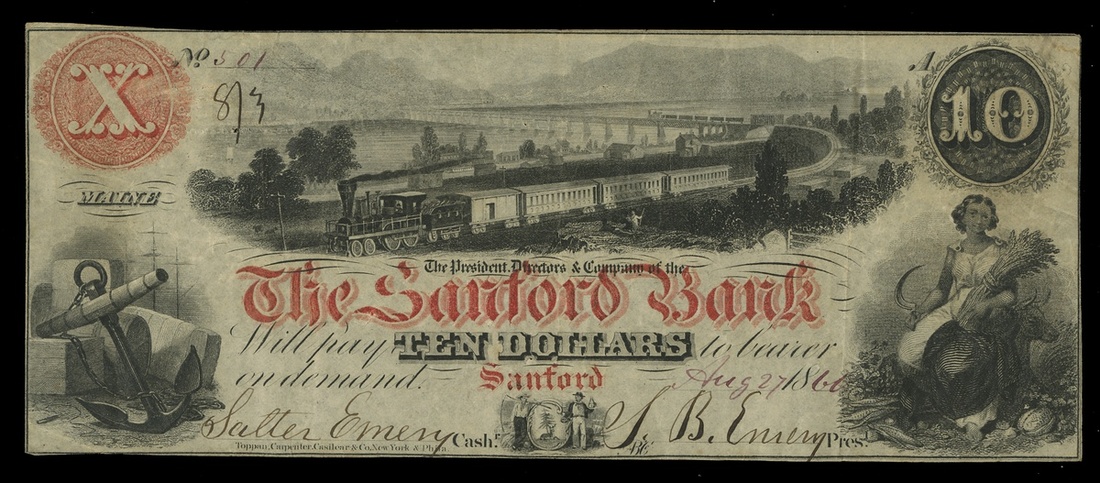 X
No 301
8/3
A
10
MAINE
The President, Directors & Company of the
The Sanford Bank
Will pay TEN DOLLARS to bearer
on demand. Sanford Aug 27 1860
Salter Emery Cashr. S. B. Emery Prest.
Toppan, Carpenter, Casilear & Co. New York & Phila.